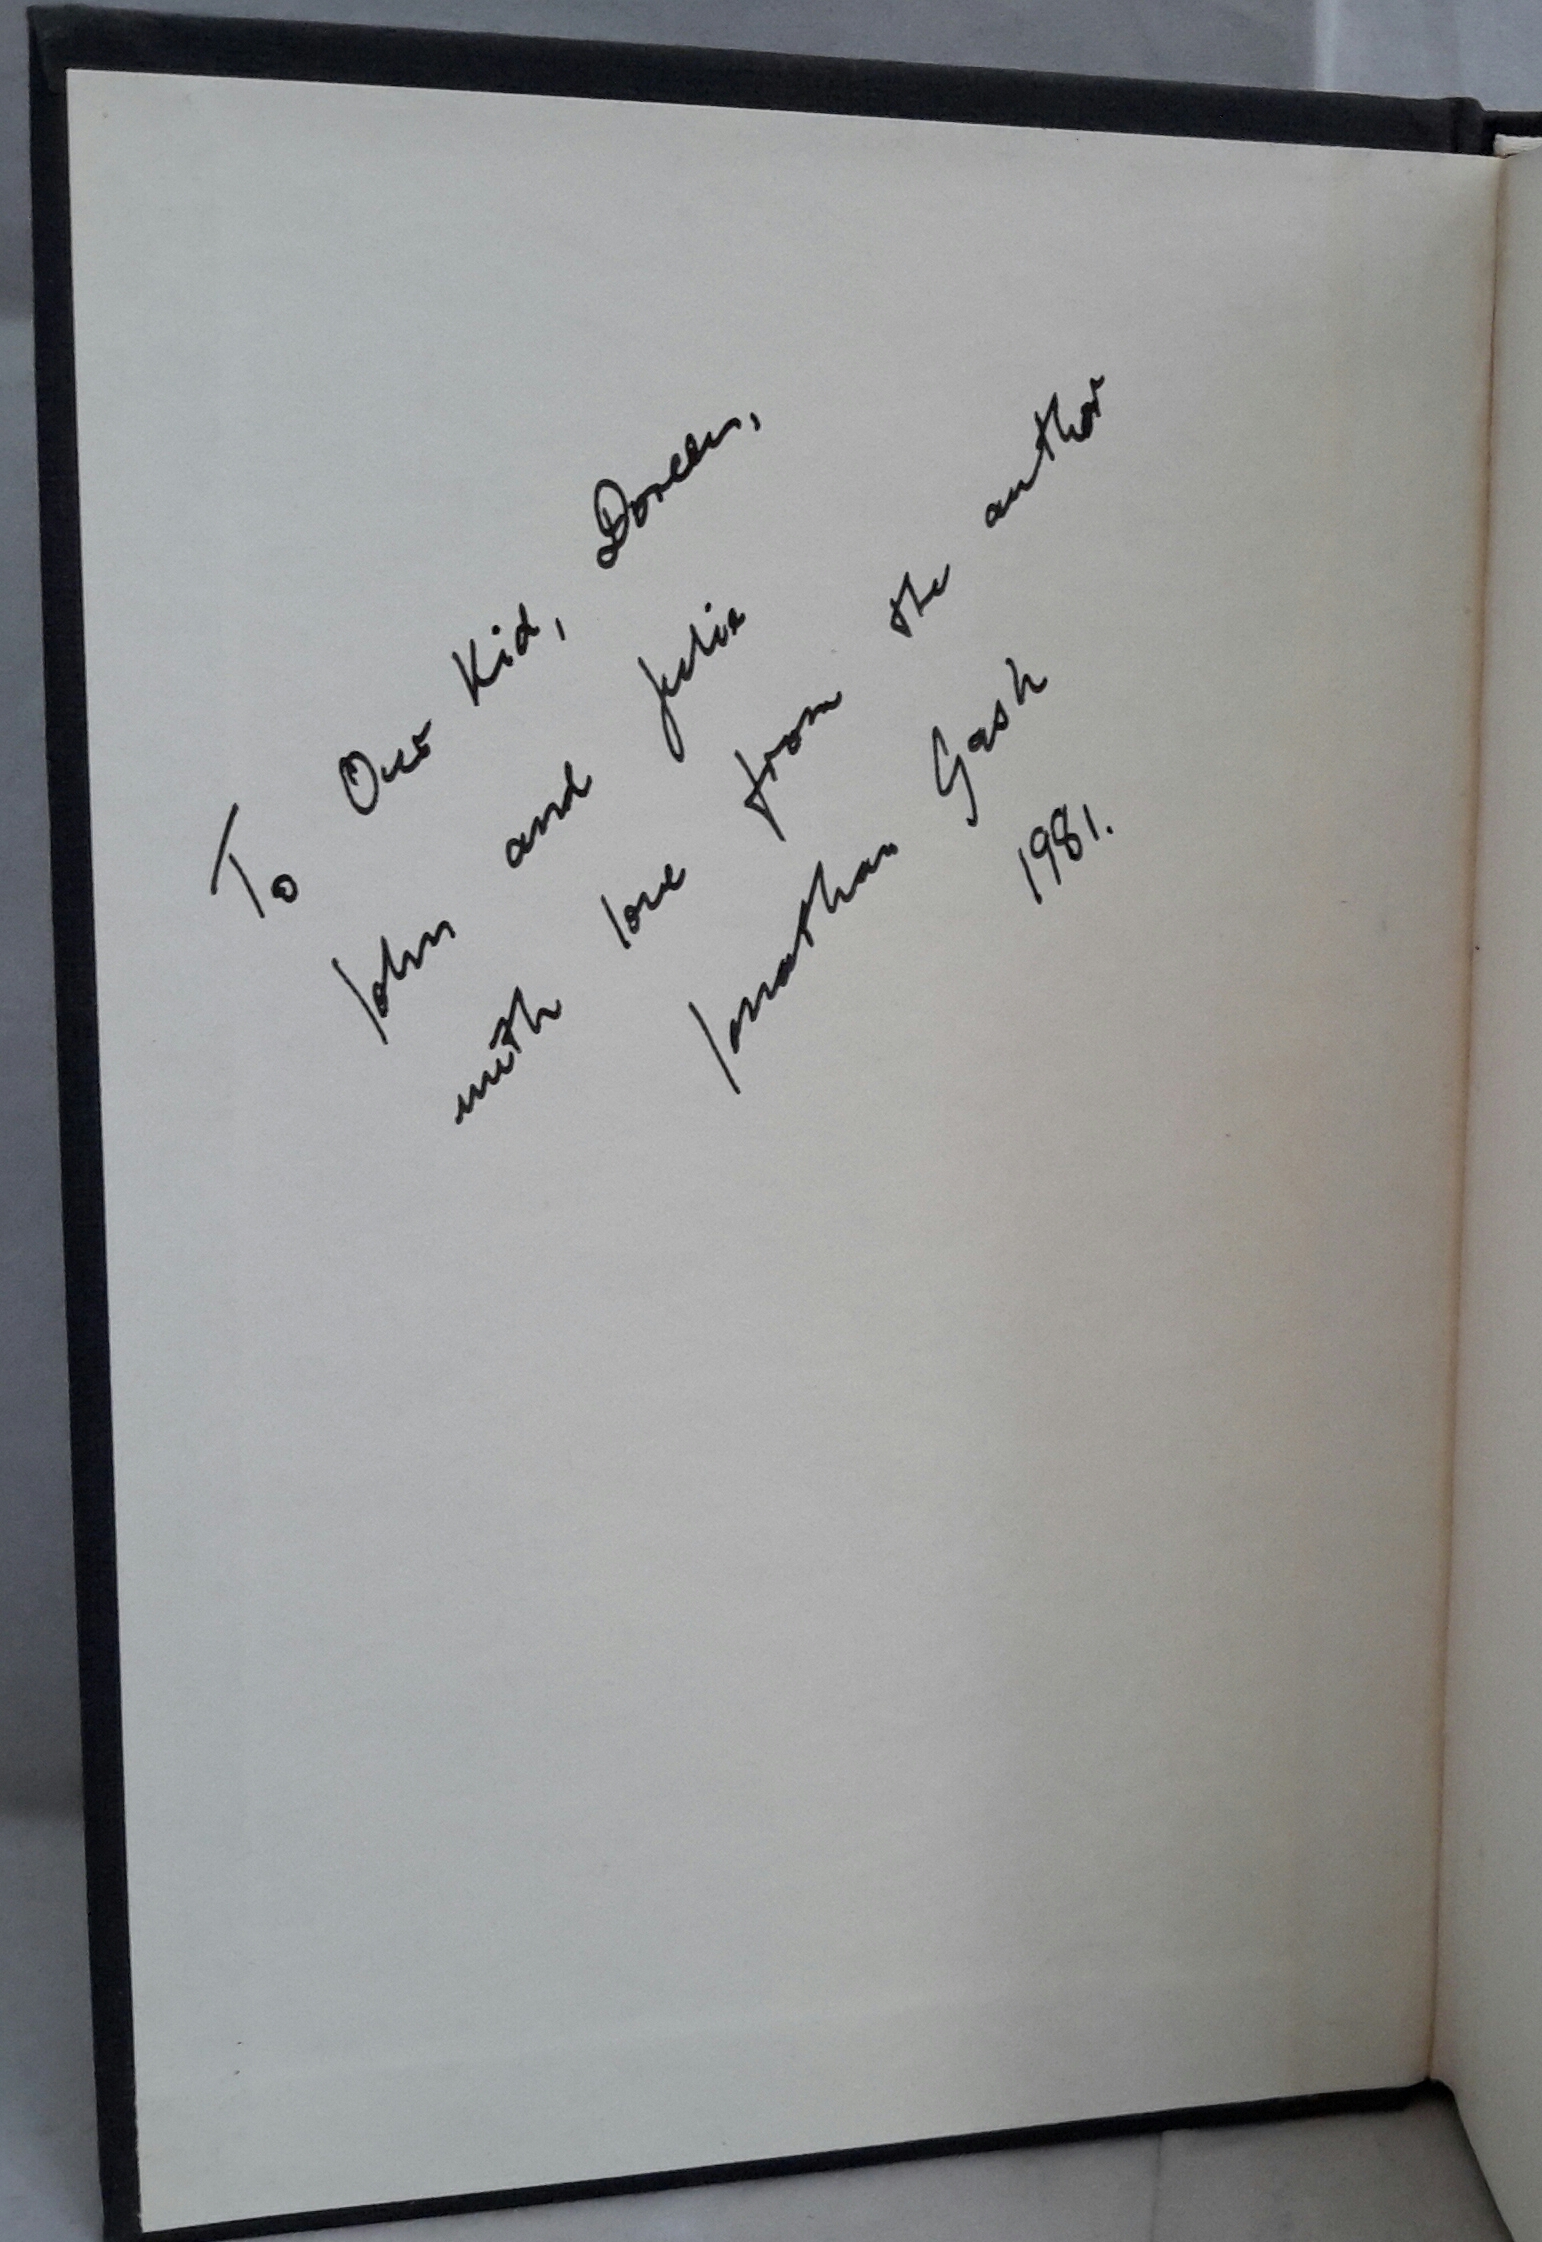 To Our Kid, Doreen,
John and Julie
with love from the author
Jonathan Gash
1981.